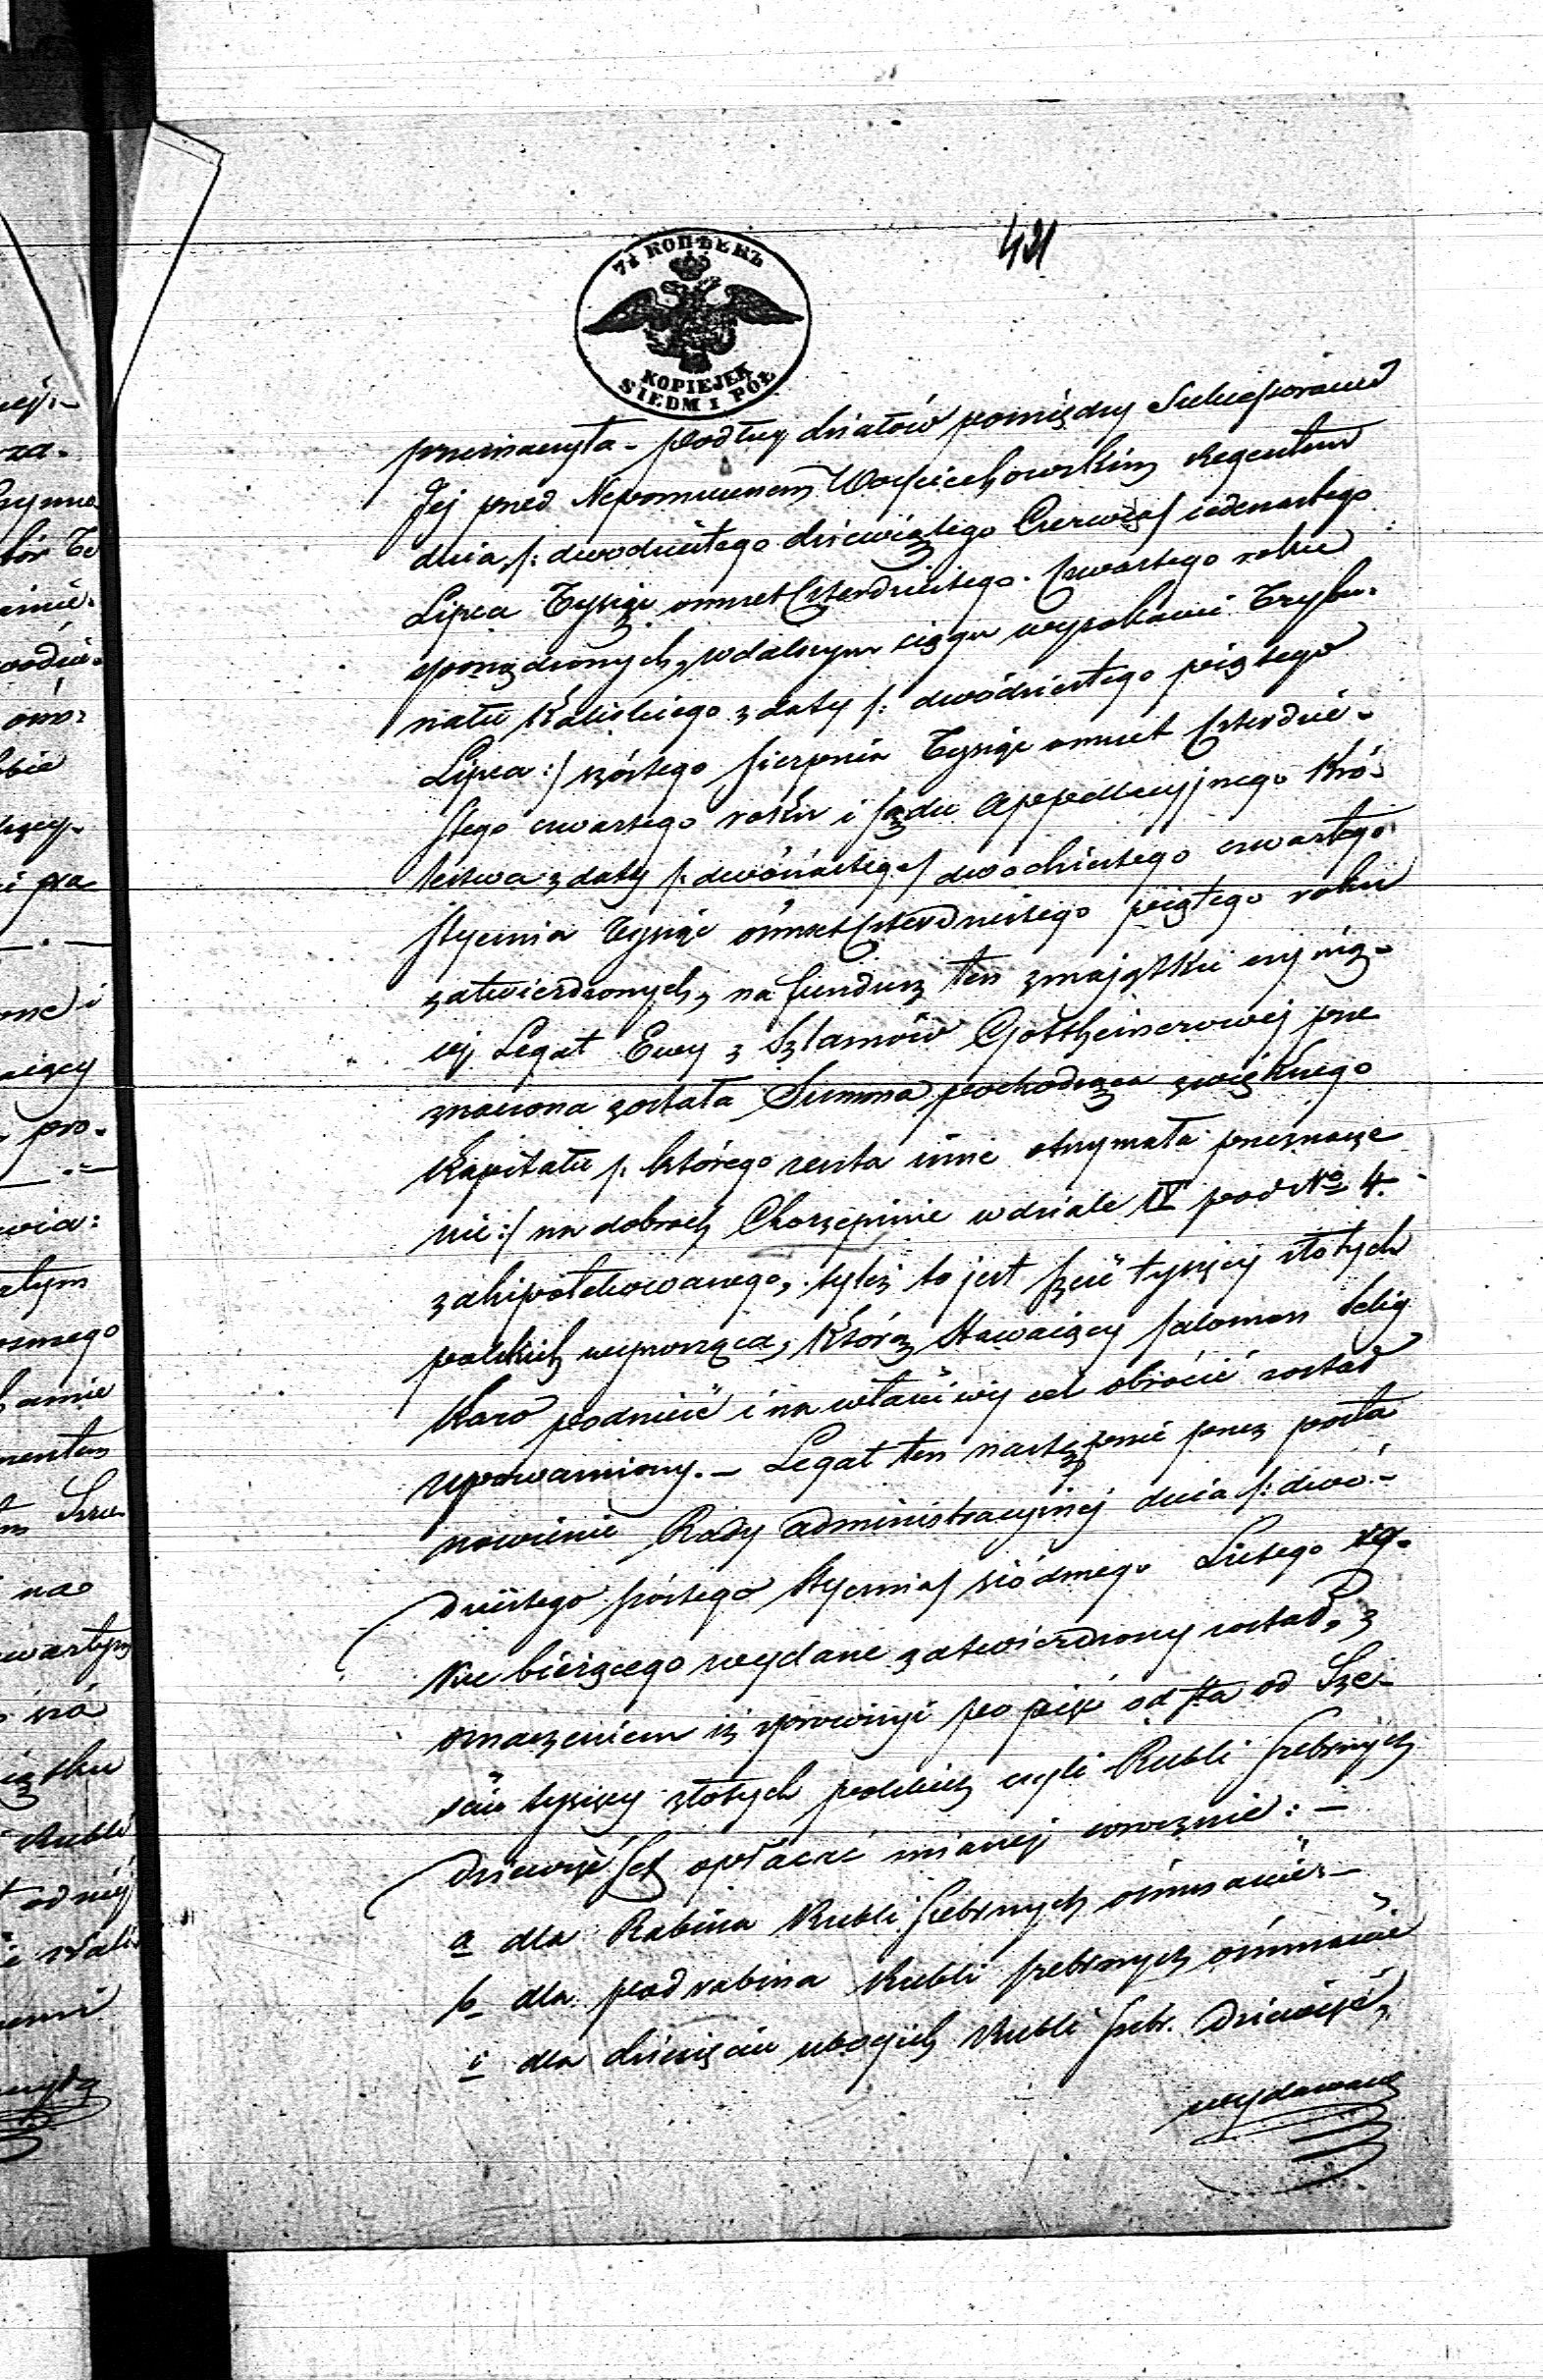 421
7½ КОПѢЕКЪ
KOPIEJEK
SIEDM I PÓŁ
przeznaczyła - podług działów pomiędzy Sukcessorami
Jej przed Nepomucenem Wojciechowskim Regentem
dnia /: dwudziestego dziewiątego Czerwca/ iedenastego
Lipca Tysiąc ośmset Czterdziestego czwartego roku
sporządzonych, w dalszym ciągu wyrokami Trybu-
nału Kaliskiego z daty /: dwódziestego piątego
Lipca :/ szóstego Sierpnia Tysiąc ośmset Czterdzie-
stego czwartego roku i Sądu Appellacyjnego Kró-
lestwa z daty /: dwónastego/ dwodziestego czwartego
Stycznia Tysiąc ośmset Czterdziestego piątego roku
zatwierdzonych, na fundusz ten z majątku czynią-
cej Legat Ewy z Szlamów Gottheinerowej prze
znaczona została Summa pochodząca z większego
Kapitału /: którego reszta inne otrzymała przeznacze
nie :/ na dobrach Chorzepinie w dziale IV pod No 4.
zahipotekowanego, tyleż to jest sześć tysięcy złotych
polskich wynosząca, którą Stawaiący Salomon Selig
Karo podnieść i na właściwy cel obrócić został
upoważniony. - Legat ten następnie przez posta
nowienie Rady Administracyjnej dnia /: dwó-
dziestego szóstego Stycznia/ siódmego Lutego ro-
ku bieżącego wydane zatwierdzony został, z
oznaczeniem iż z prowizyi po pięć od sta od Sze-
ściu tysięcy złotych polskich czyli Rubli srebrnych
dziewięćset opłacać mianej corocznie: -
a dla Rabina Rubli srebrnych ośmnaście -
b dla podrabina Rubli srebrnych ośmnaście
c dla dziesięciu ubogich Rubli srebr. Dziewięć,
wydawane